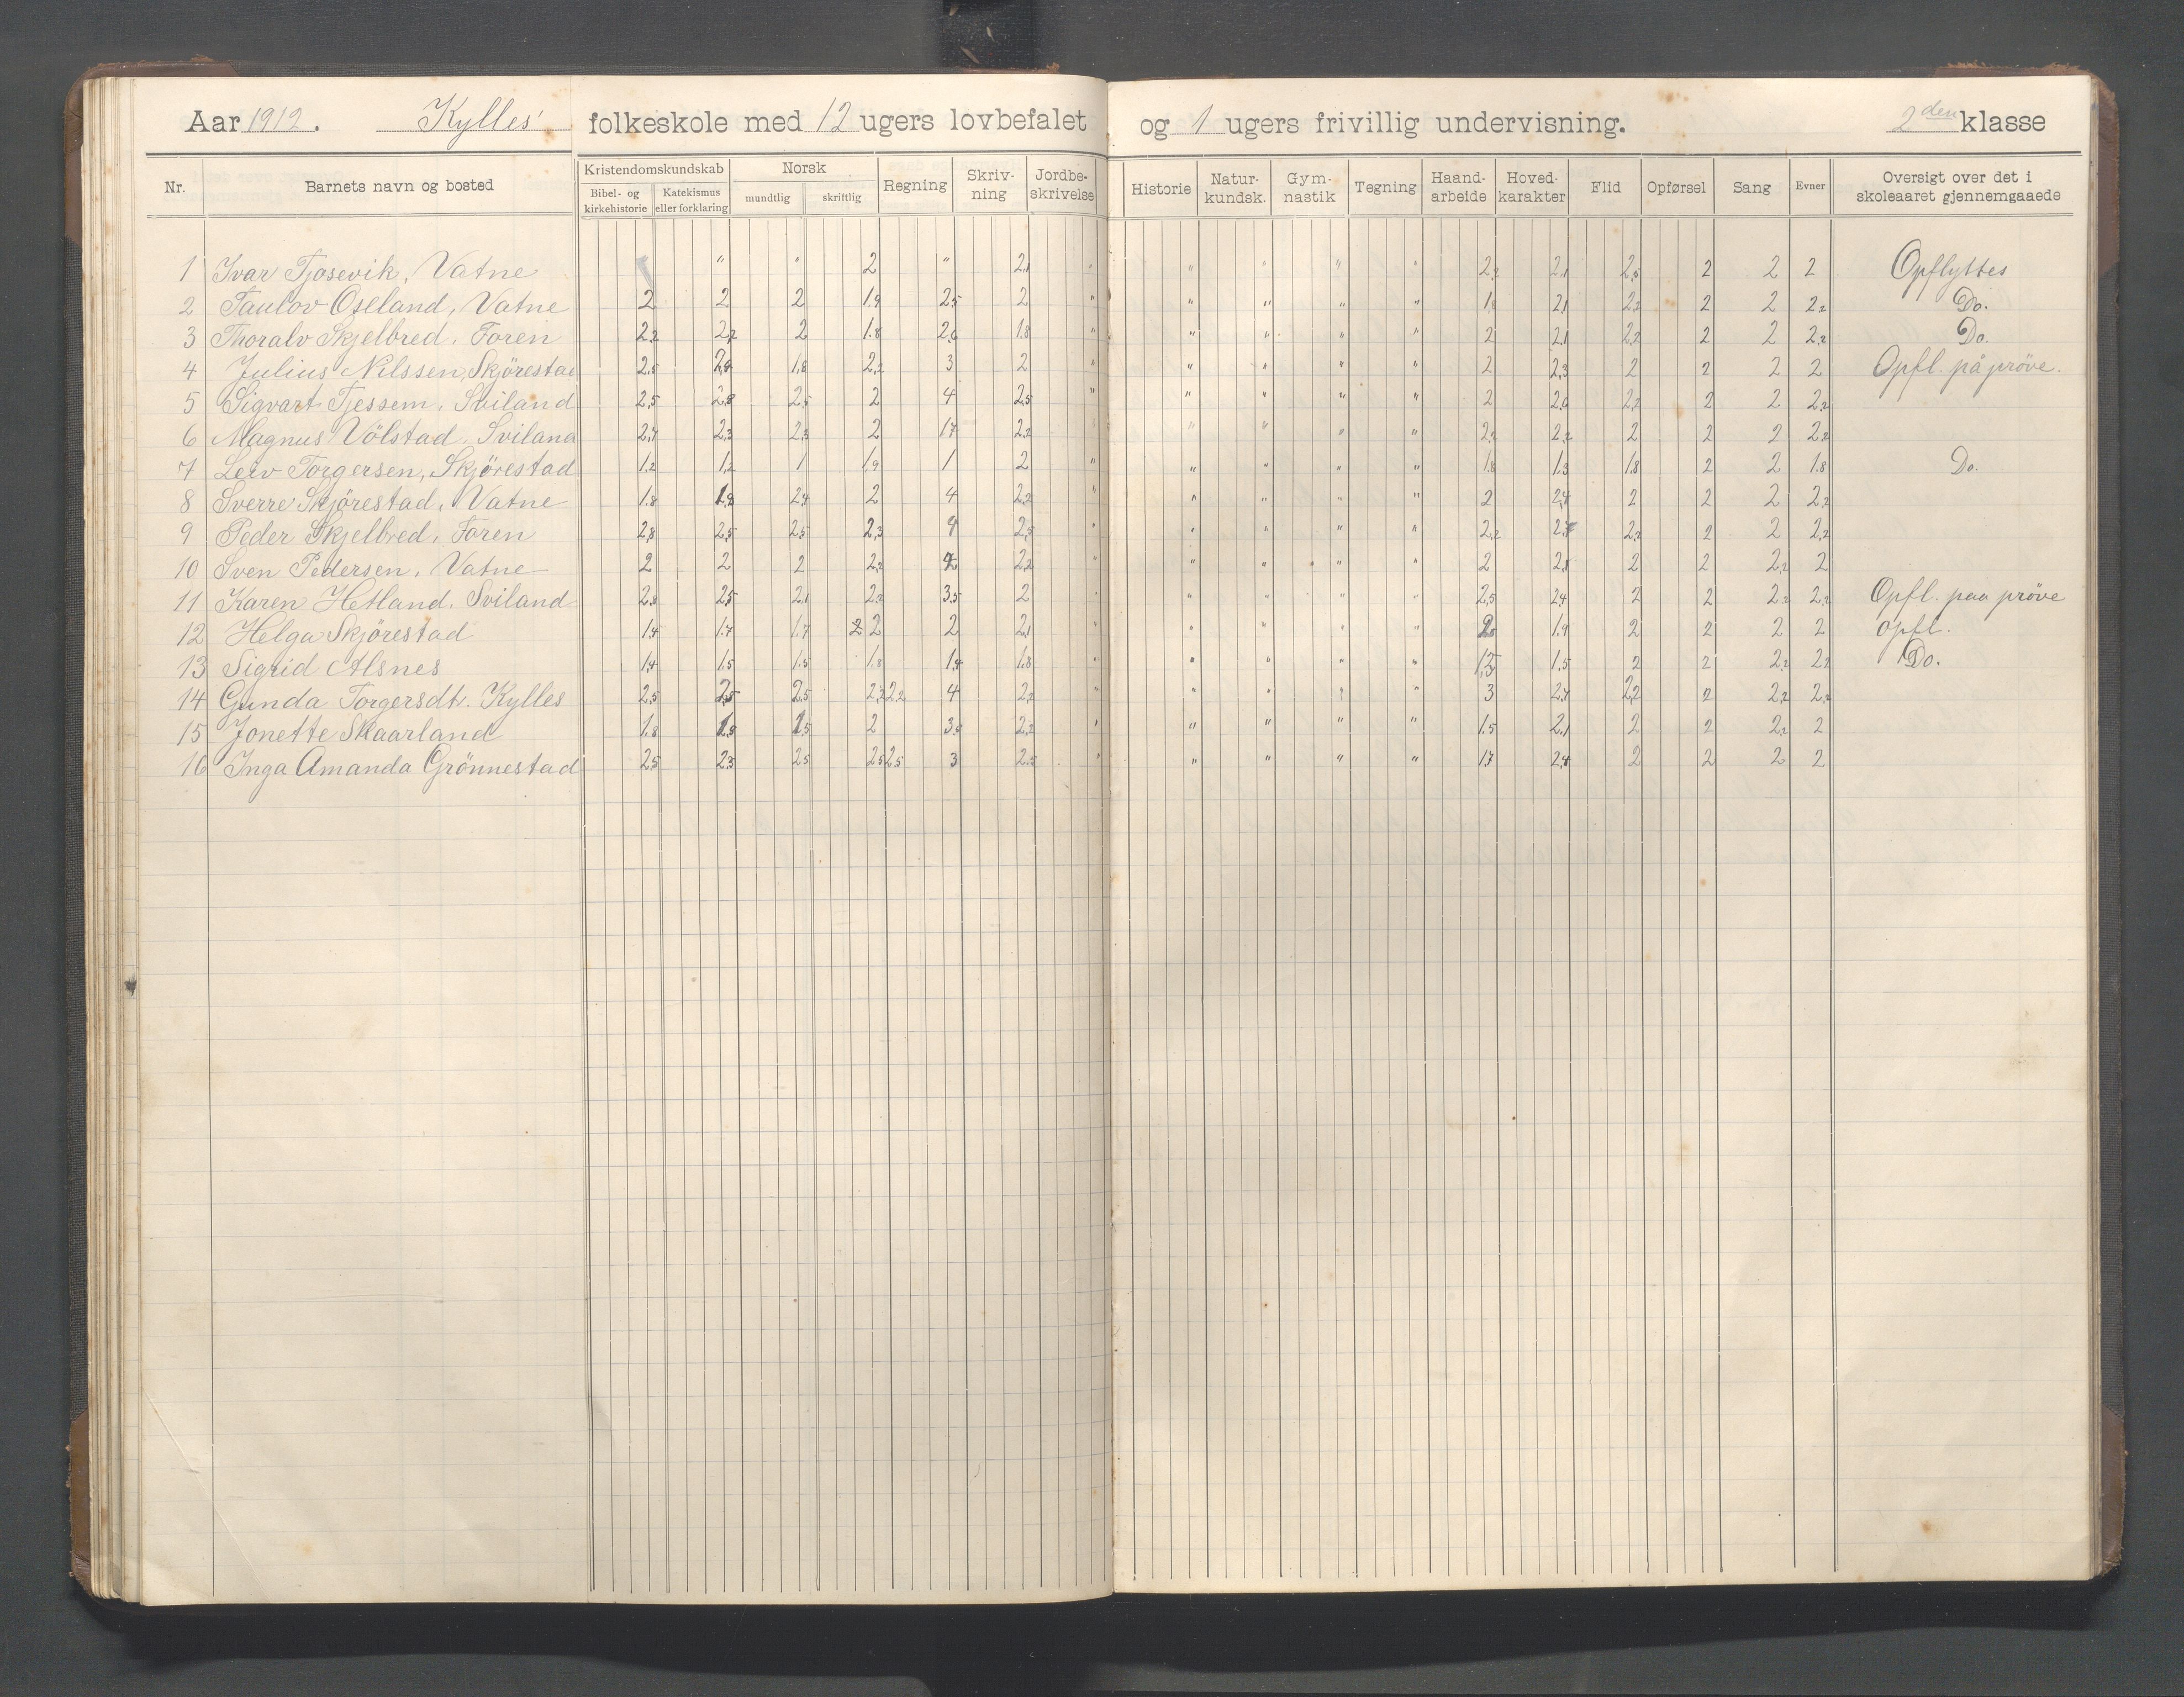 Aar 1912. Kylles' folkeskole med 12 ugers lovbefalet og 1 ugers frivillig undervisning. 2den klasse
Nr. Barnets navn og bosted Kristendomskundskab Bibel- og kirkehistorie Katekismus eller forklaring Norsk mundtlig skriftlig Regning Skriv-ning Jordbe-skrivelse Historie Natur-kundsk. Gym-nastik Tegning Haand-arbeide Hoved-karakter Flid Opførsel Sang Evner Oversigt over det i skoleaaret gjennemgaaede
1 Ivar Tjosevik, Vatne " " " 2 " 2,1 " " " " " 2,2 2,1 2,5 2 2 2 Opflyttes
2 Taulov Oseland, Vatne 2 2 2 1,9 2,5 2 " " " " " 1,8 2,1 2,2 2 2 2,2 Do.
3 Thoralv Skjelbred, Foren 2,2 2,2 2 1.8 2,6 1.8 " " " " " 2 2,1 2,2 2 2 2,2 Do.
4 Julius Nilssen, Skjörestad 2,5 1,8 2,2 3 2 " " " " 2 2,3 2 2 2 2 Opfl. på pröve.
5 Sigvart Tjessem, Sviland 2,5 2,8 2,5 2 4 2,5 " " " " " 2 2,6 2,2 2 2 2,2
6 Magnus Völstad, Sviland 2,4 2,3 2,3 2 17 2,2 " " " " 2,2 2,2 2 2 2 2,2
7 Leiv Torgersen, Skjörestad 1,2 1,2 1 1,9 1 2 " " " " " 1,8 1,3 1,8 2 2 1.8 Do.
8 Sverre Skjörestad, Vatne 1.8 1,8 2,4 2 4 2,2 " " " " " 2 2,4 2 2 2 2,2
9 Peder Skjelbred, Foren 2,8 2,5 2,5 2,3 4 2,5 " " " " " 2,2 2,7 2,2 2 2 2,2
10 Sven Pedersen, Vatne 2 2 2 2,2 4 2,2 " " " " " 2 2 2 2,2 2
11 Karen Hetland, Sviland 2,3 2,5 2,1 2,2 3,5 2 " " " " " 2,5 2,4 2 2 2,2 2,2 Opfl. paa pröve
12 Helga Skjörestad 1,4 1.7 1.7 2 2 2 2,1 " " " " 1,9 2 2 2 2 opfl.
13 Sigrid Alsnes 1,4 1.5 1.5 1.8 1,4 1.8 " " " " " 1,5 1,5 2 2 2,2 2,2 Do.
14 Gunda Torgersdt. Kylles 2,5 2,5 2,5 2,2 2,2 4 2,2 " " " " " 3 2,7 2,2 2 2,2 2,2
15 Jonette Skaarland 1.8 1,5 1,5 2 3,5 2,2 " " " " " 1.5 2,1 2 2 2,2 2
16 Inga Amanda Grönnestad 2,5 2,3 2,5 2,5 2,5 3 2,5 " " " " " 1,7 2,4 2 2 2 2